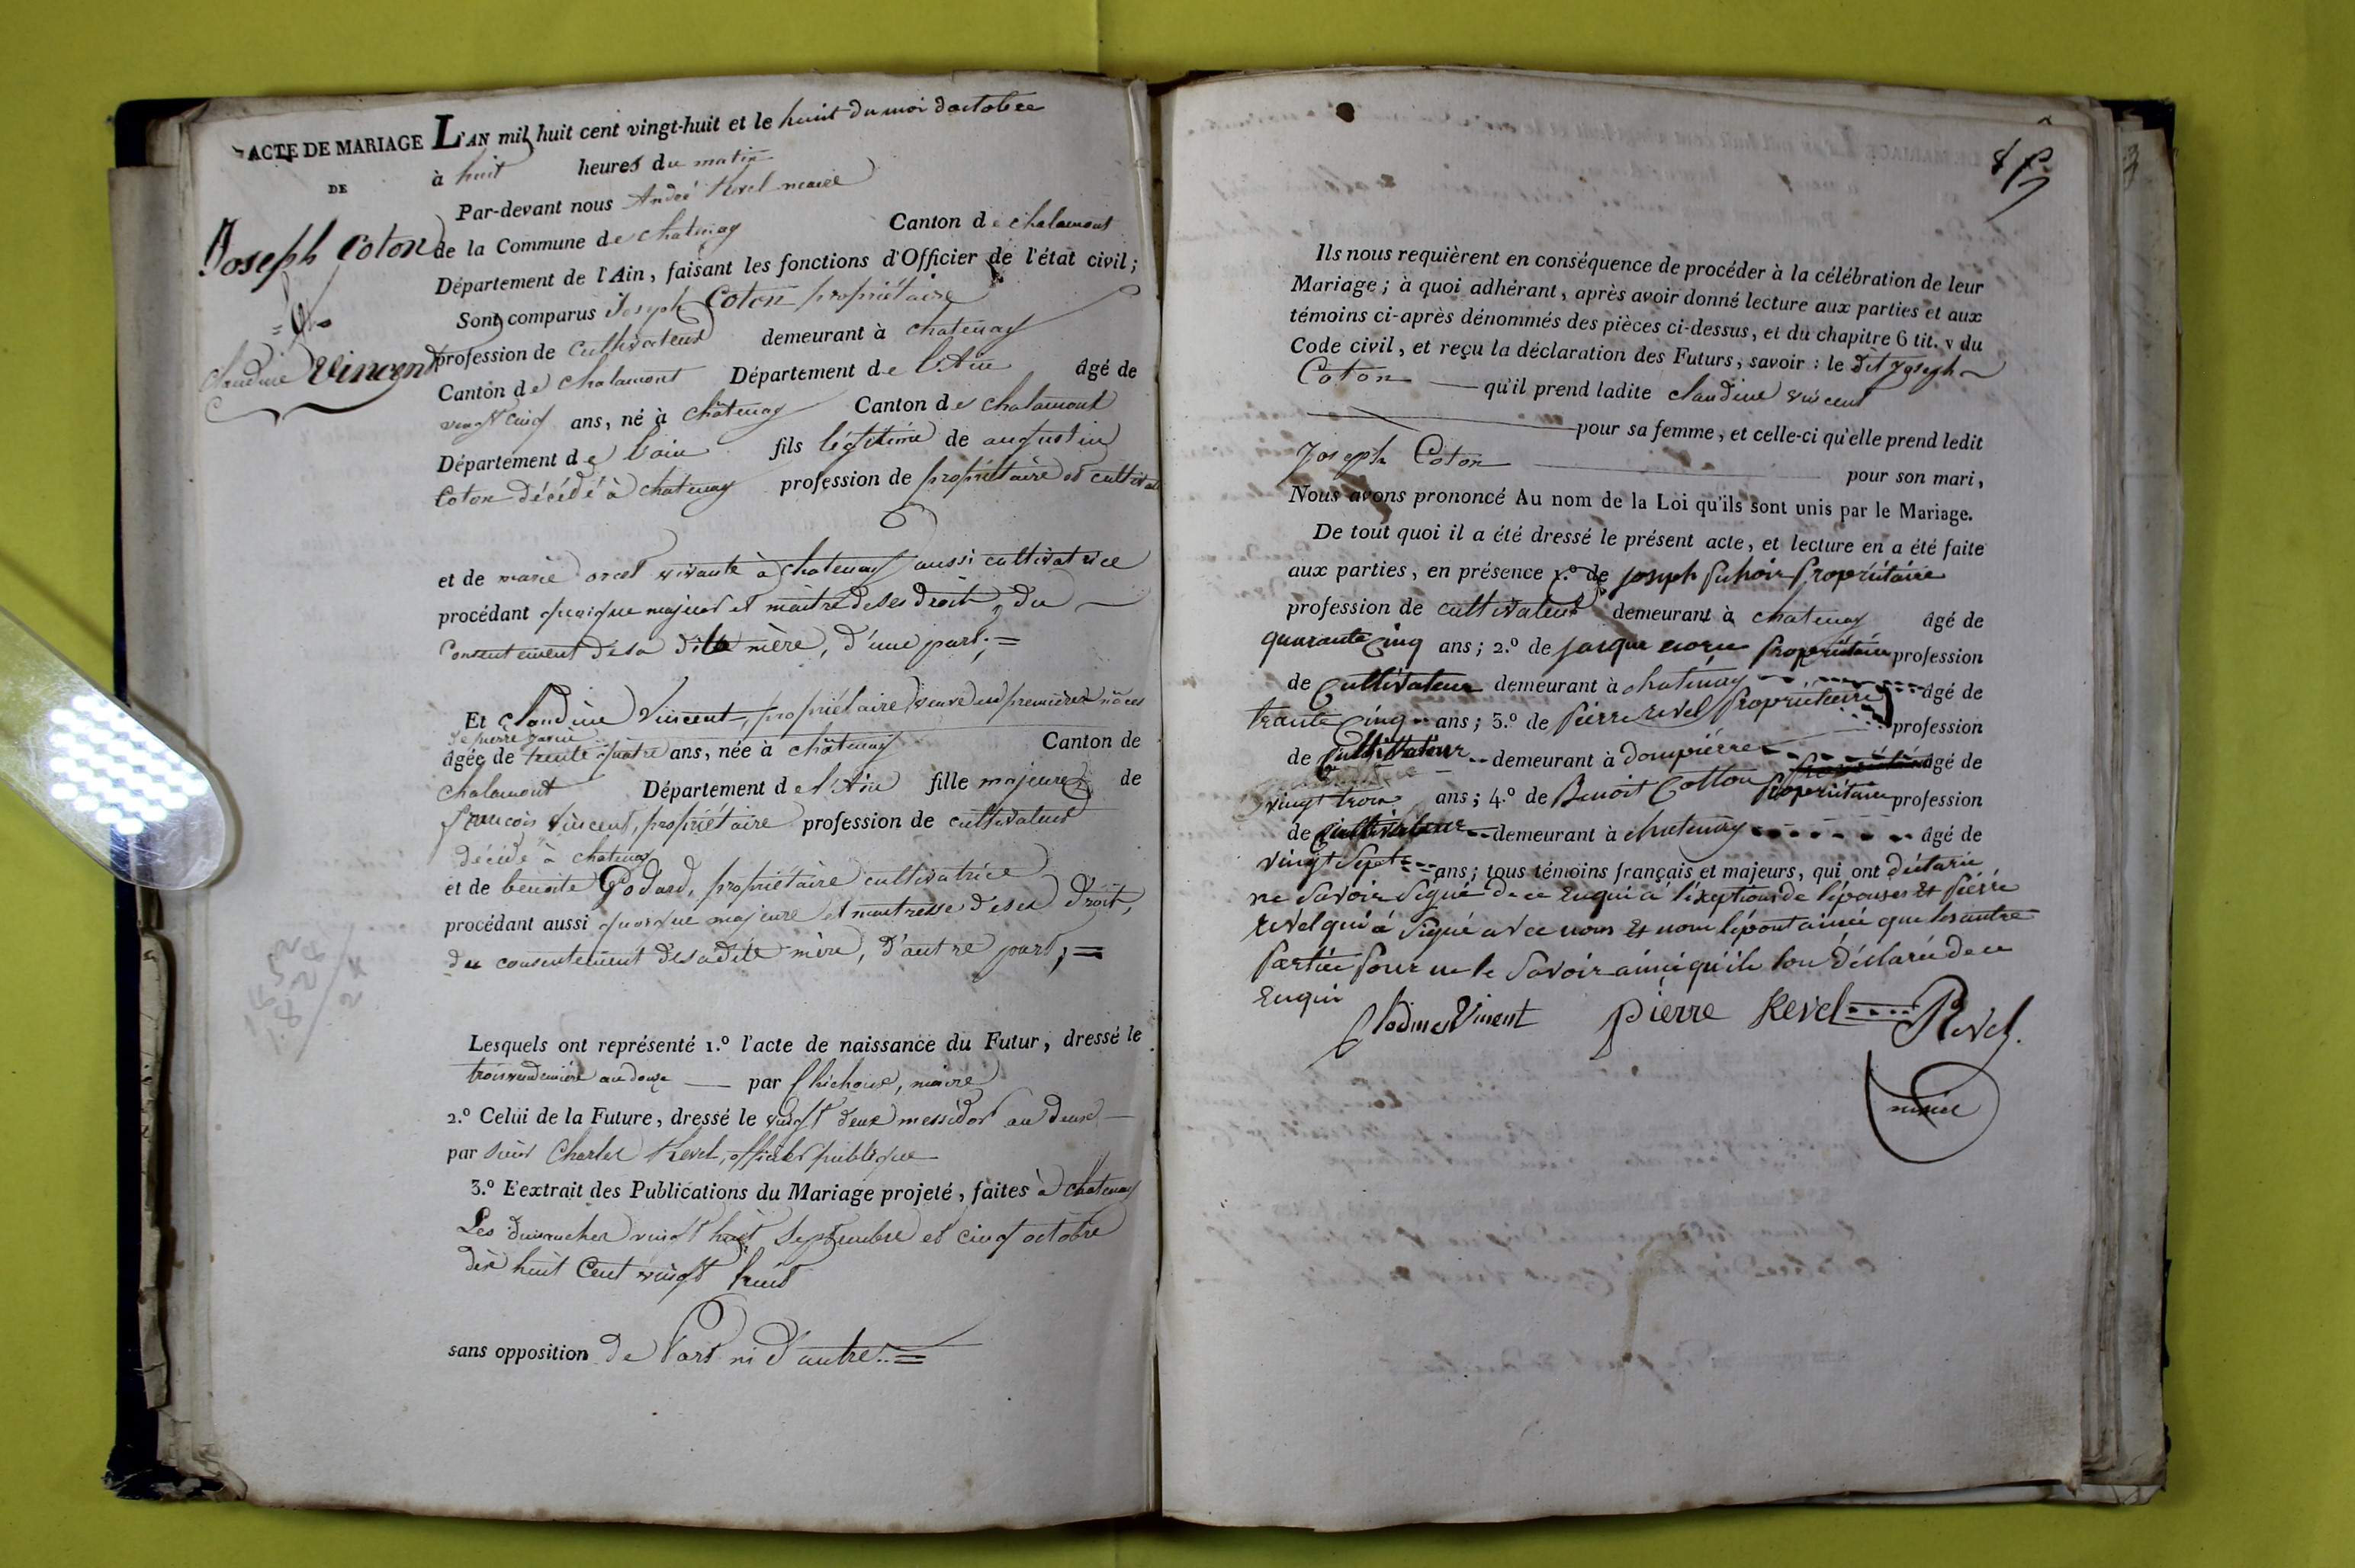 ACTE DE MARIAGE
DE
Joseph Coton
&
Claudine Vincent
L'AN mil huit cent vingt-huit et le huit du moi doctobre
à huit heures du matin
Par-devant nous André Revel maire
de la Commune de chatenay Canton de chalamont
Département de l'Ain, faisant les fonctions d'Officier de l'état civil;
Sont comparus Joseph Coton propriétaire
profession de cultivateur demeurant à chatenay
Canton de chalamont Département de l'Ain âgé de
vingt cinq ans, né à châtenay Canton de chalamont
Département de l'ain fils légitime de augustin
Coton décédé à chatenay profession de propriétaire et cultivat
et de marie orcel vivante à chatenay aussi cultivatrice
procédant quoique majeur et maitre de ses droit, du
Consentement de sa dite mère, d'une part;=
Et claudine Vincent, propriétaire veuve en premières noces
de pierre
âgée de trente quatre ans, née à châtenay Canton de
chalamont Département de l'Ain fille majeure de
françois Vincent, propriétaire profession de cultivateur
décédé à chatenay
et de benoite Godard, propriétaire cultivatrice
procédant aussi quoique majeure et maitresse de ses droit,
du consentement de sadite mère, d'autre part;=
Lesquels ont représenté 1.º l'acte de naissance du Futur, dressé le
trois vendemière an douze par maire
2.º Celui de la Future, dressé le vingt deux messidor an deux
par sieur Charles Revel, officier publique
3.º L'extrait des Publications du Mariage projeté, faites à chatenay
Les dimanches vingt huit Septembre et cinq octobre
dix huit Cent vingt huit
sans opposition de Part ni d'autre..=
Ils nous requièrent en conséquence de procéder à la célébration de leur
Mariage; à quoi adhérant, après avoir donné lecture aux parties et aux
témoins ci-après dénommés des pièces ci-dessus, et du chapitre 6 tit. v du
Code civil, et reçu la déclaration des Futurs, savoir: le dit Joseph
Coton qu'il prend ladite claudine vincent
pour sa femme, et celle-ci qu'elle prend ledit
Joseph Coton pour son mari,
Nous avons prononcé Au nom de la Loi qu'ils sont unis par le Mariage.
De tout quoi il a été dressé le présent acte, et lecture en a été faite
aux parties, en présence 1.º de joseph Propriétaire
profession de cultivateur demeurant à chatenay âgé de
quarante cinq ans; 2.º de jasque Propriétaire profession
de Cultivateur demeurant à chatenay âgé de
trante cinq ans; 3.º de Pierre revel Propriétaire profession
de Cultivateur demeurant à dompiérre âgé de
vingt trois ans; 4.º de Benoit Cotton Propriétaire profession
de Cultivateur demeurant à chatenay âgé de
vingt Sept ans; tous témoins français et majeurs, qui ont déclaré
ne Savoir Signé de ce Enquis à l'éxeption de l'épouse Et Piérre
revel qui à Signé avec nous Et non l'épout ainsi que les autre
Partie Pour ne le Savoir ainsi qu'ils lon déclaré de ce
Enqui
Clodine Vincent pierre Revel Revel.
maire